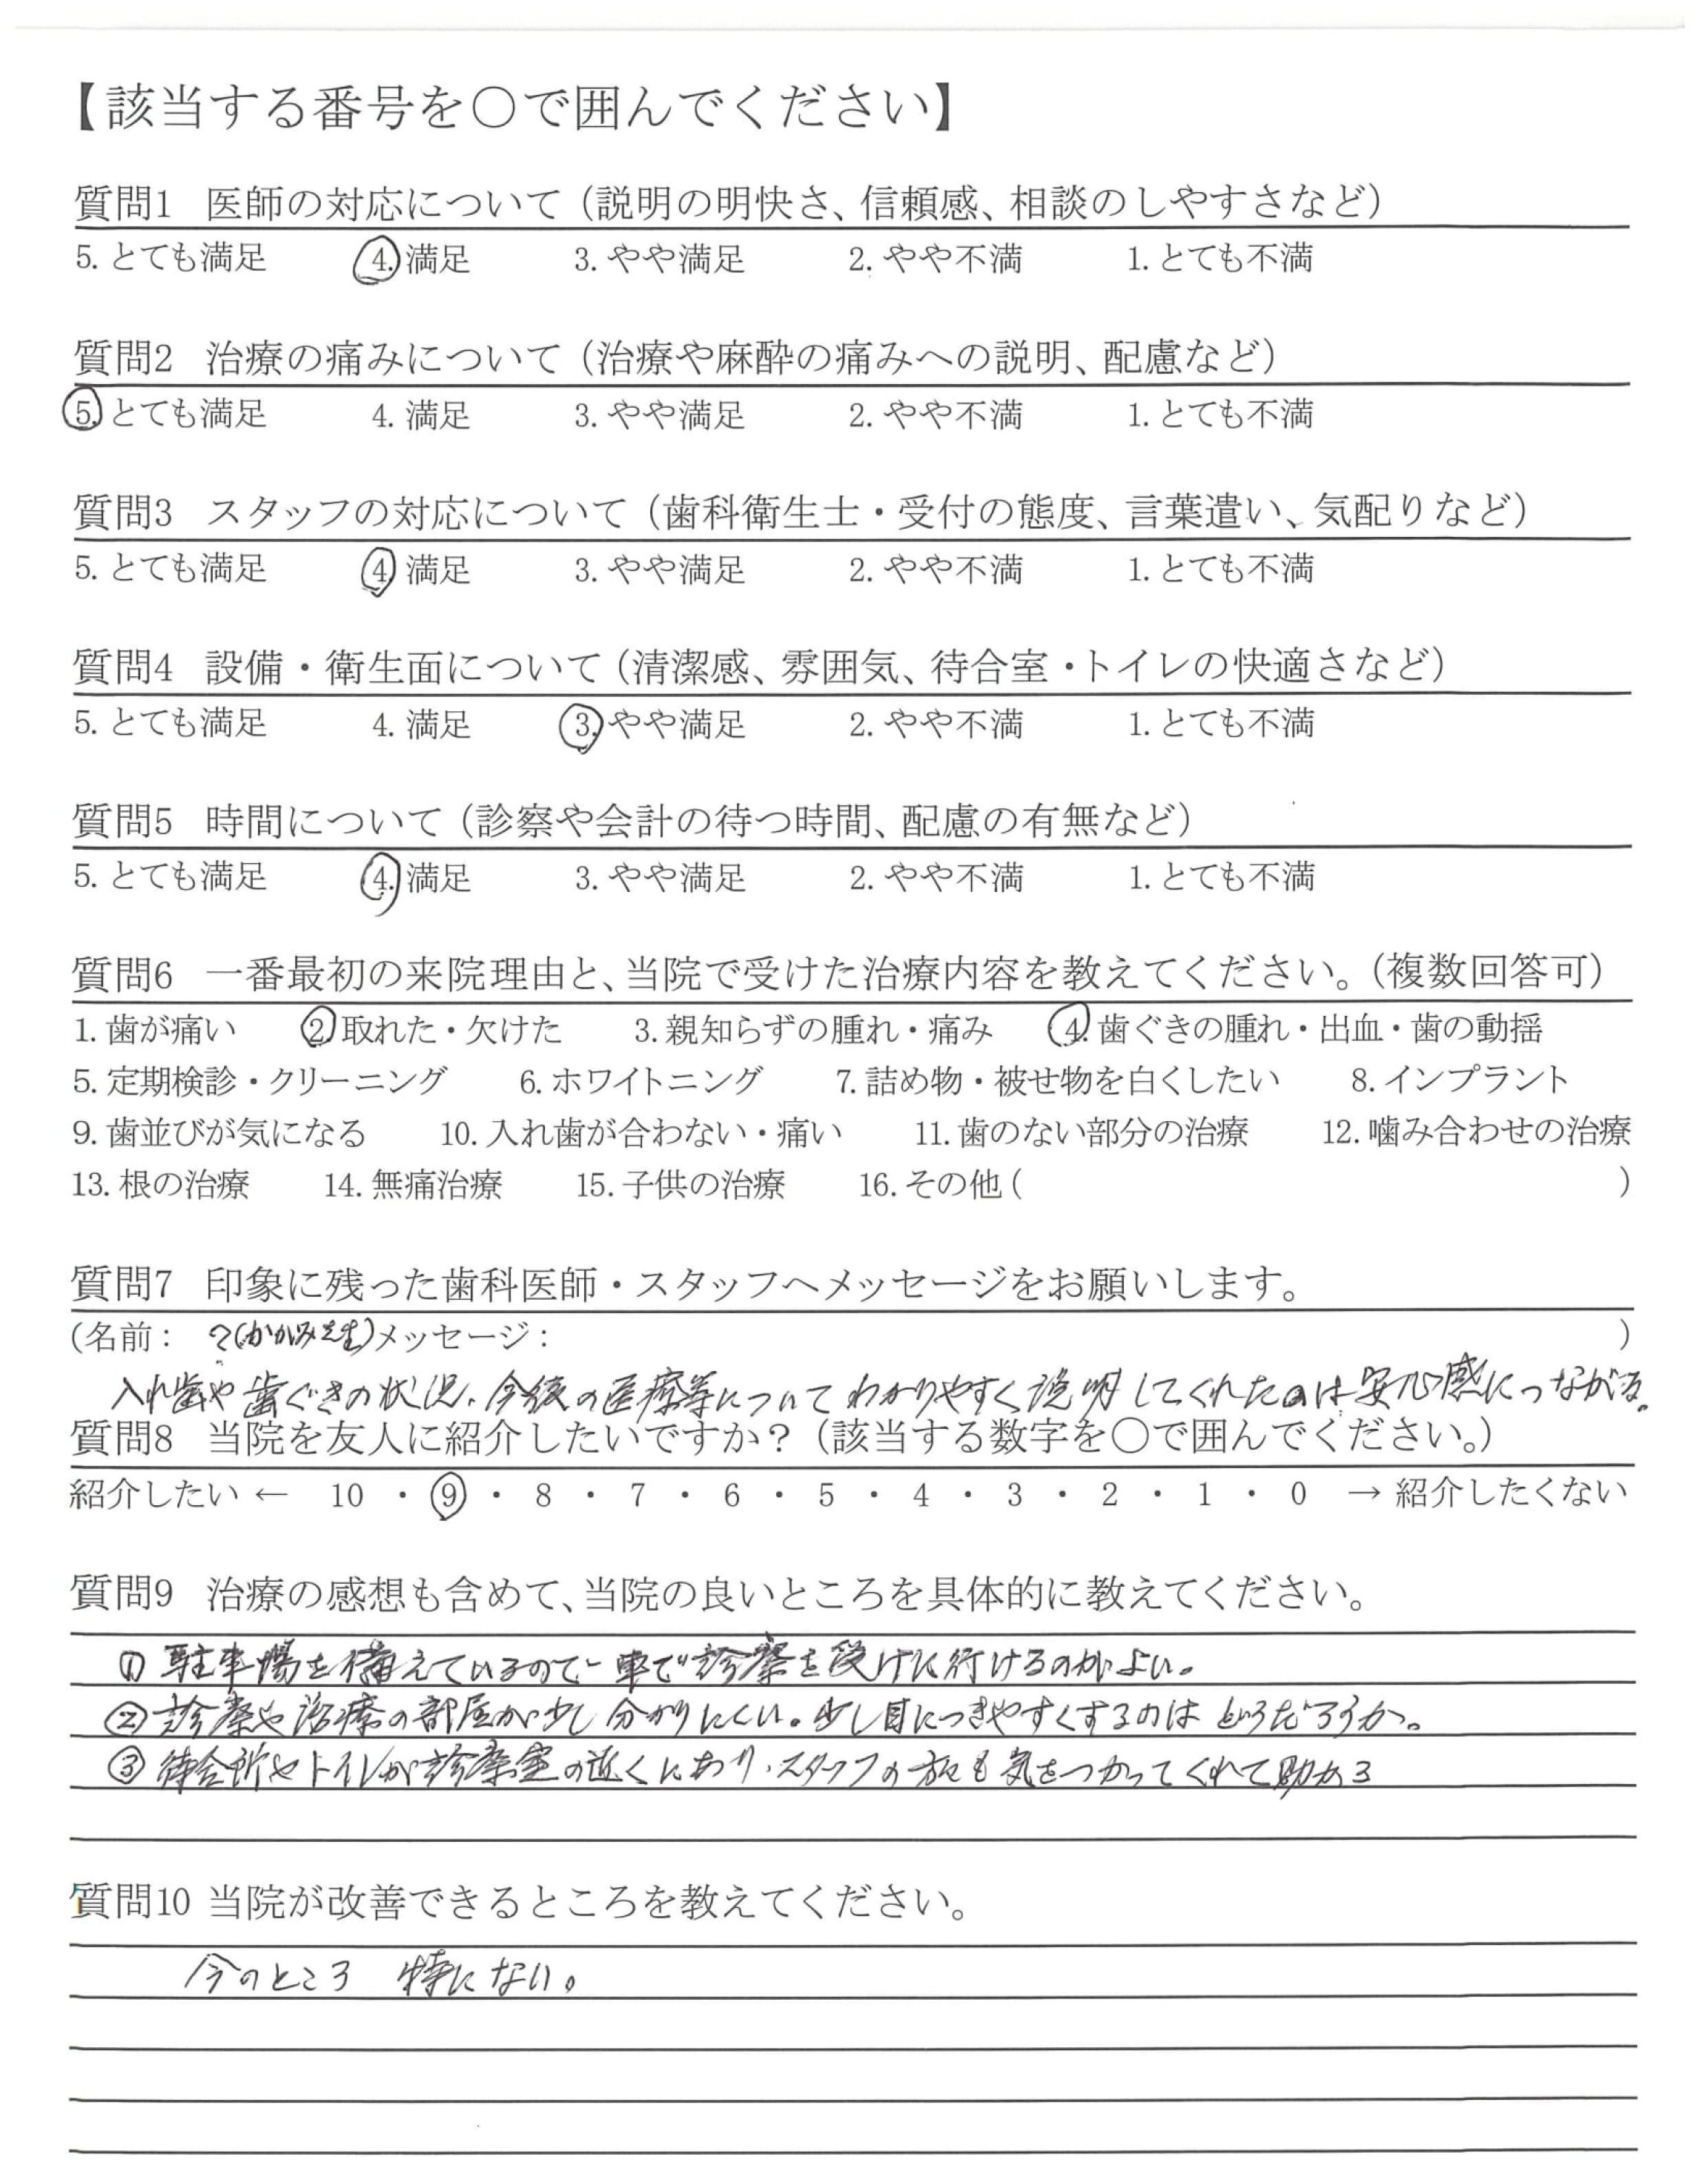 【該当する番号を〇で囲んでください】
質問1 医師の対応について（説明の明快さ、信頼感、相談のしやすさなど）
5. とても満足 4. 満足 3. やや満足 2. やや不満 1. とても不満
質問2 治療の痛みについて（治療や麻酔の痛みへの説明、配慮など）
5. とても満足 4. 満足 3. やや満足 2. やや不満 1. とても不満
質問3 スタッフの対応について（歯科衛生士・受付の態度、言葉遣い、気配りなど）
5. とても満足 4. 満足 3. やや満足 2. やや不満 1. とても不満
質問4 設備・衛生面について（清潔感、雰囲気、待合室・トイレの快適さなど）
5. とても満足 4. 満足 3. やや満足 2. やや不満 1. とても不満
質問5 時間について（診察や会計の待つ時間、配慮の有無など）
5. とても満足 4. 満足 3. やや満足 2. やや不満 1. とても不満
質問6 一番最初の来院理由と、当院で受けた治療内容を教えてください。（複数回答可）
1. 歯が痛い 2. 取れた・欠けた 3. 親知らずの腫れ・痛み 4. 歯ぐきの腫れ・出血・歯の動揺
5. 定期検診・クリーニング 6. ホワイトニング 7. 詰め物・被せ物を白くしたい 8. インプラント
9. 歯並びが気になる 10. 入れ歯が合わない・痛い 11. 歯のない部分の治療 12. 噛み合わせの治療
13. 根の治療 14. 無痛治療 15. 子供の治療 16. その他（ ）
質問7 印象に残った歯科医師・スタッフへメッセージをお願いします。
（名前： ?(かがみ先生)メッセージ： ）
入れ歯や歯ぐきの状況、今後の医療等についてわかりやすく説明してくれたのは安心感につながる。
質問8 当院を友人に紹介したいですか？（該当する数字を〇で囲んでください。）
紹介したい ← 10 ・ 9 ・ 8 ・ 7 ・ 6 ・ 5 ・ 4 ・ 3 ・ 2 ・ 1 ・ 0 → 紹介したくない
質問9 治療の感想も含めて、当院の良いところを具体的に教えてください。
① 駐車場を備えているので車で診察を受けに行けるのがよい。
② 診察や治療の部屋が少し分かりにくい。少し目につきやすくするのはどうだろうか。
③ 待合所やトイレが診察室の近くにあり、スタッフの方も気をつかってくれて助かる
質問10 当院が改善できるところを教えてください。
今のところ 特にない。